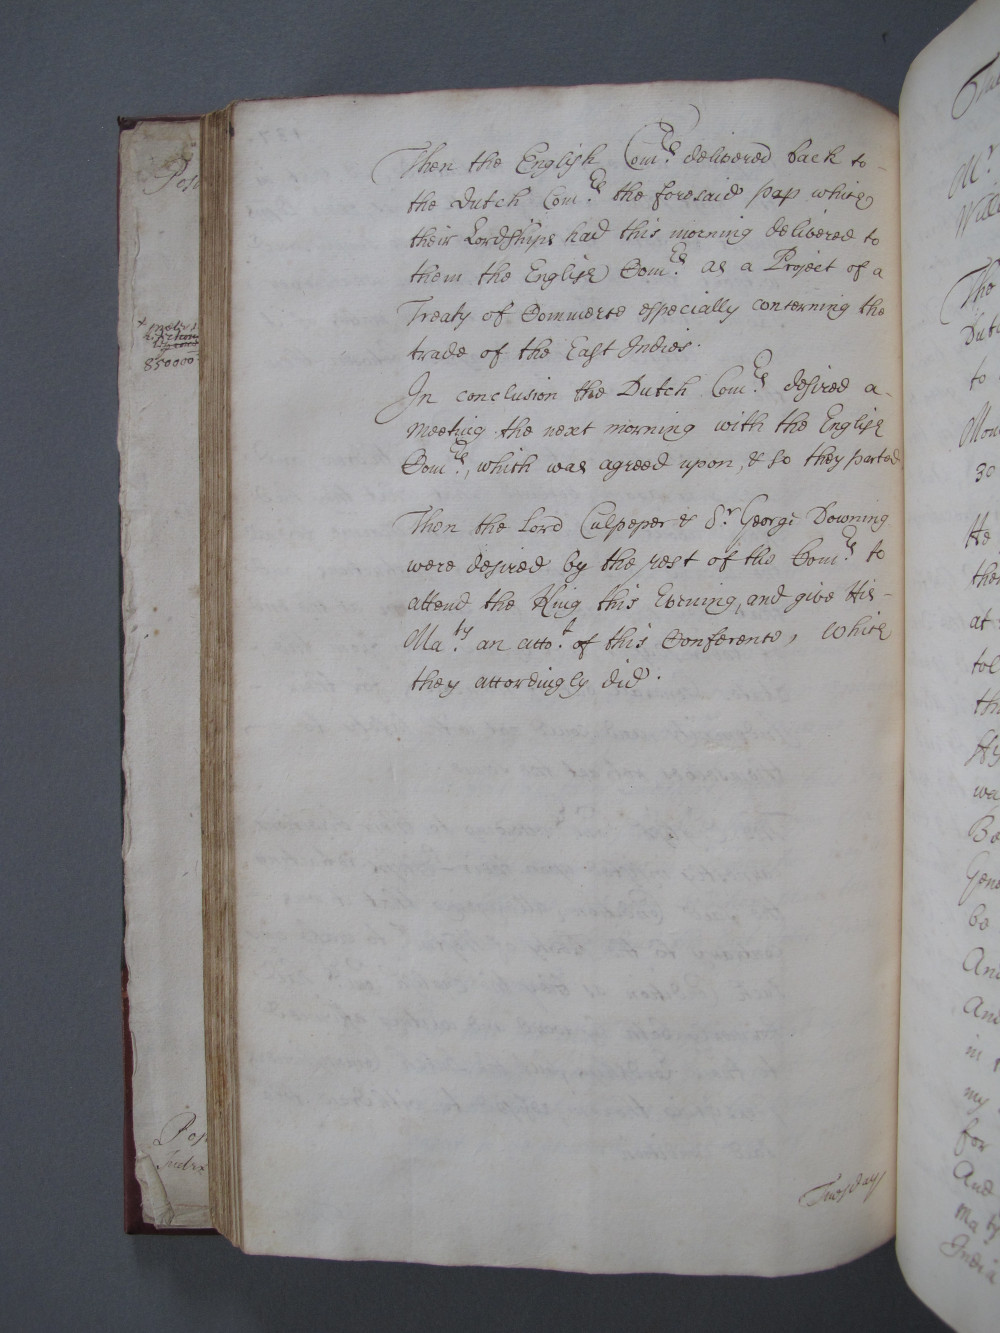 Then the English Com.rs delivered back to -
the Dutch Com.rs the foresaid pap which
their Lordships had this morning delivered to
them the English Com.rs as a Project of a
Treaty of Commerce especially concerning the
trade of the East Indies.
In conclusion the Dutch Com.rs desired a -
meeting the next morning with the English
Com.rs, which was agreed upon, & so they parted
Then the Lord Culpeper & S.r George Downing
were desired by the rest of the Com.rs to
attend the King this Evening, and give His -
Ma.ty an acco.t of this Conference, which
they accordingly did.
Tuesday
850000
Index
M.r
The
to
30
He
at
tol
wa
be
And
in
my
for
And
Ma.ty
India